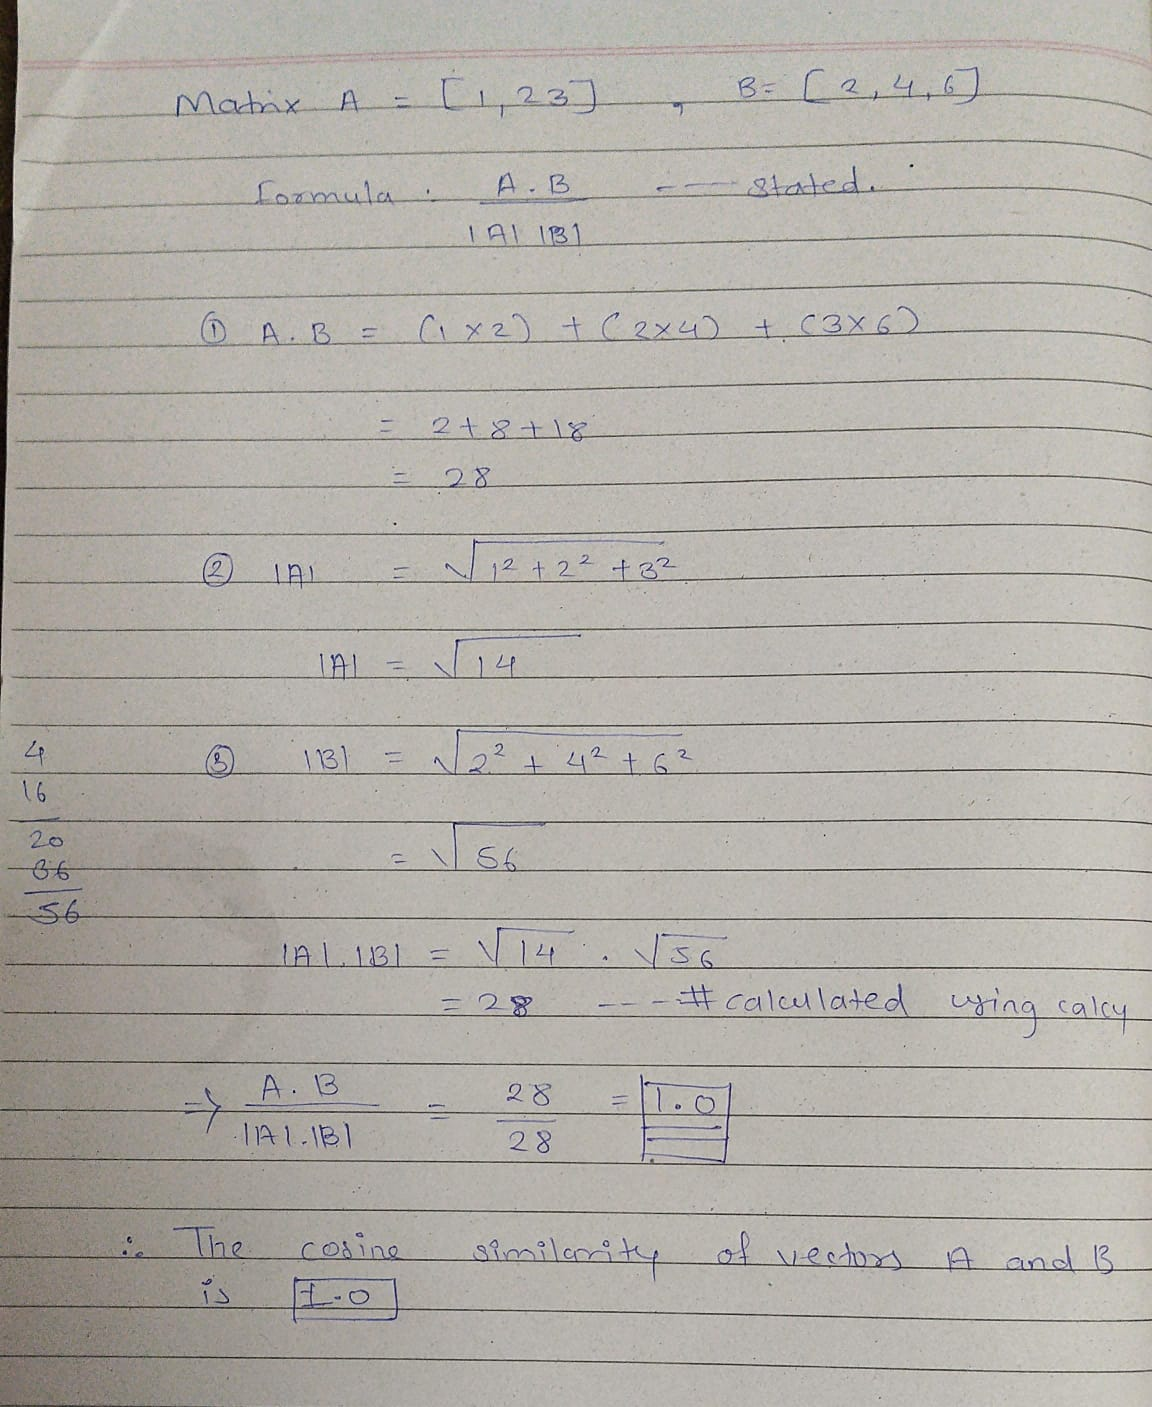 Matrix A = [1,23] , B= [2,4,6]
formula : A.B / |A| |B| --- stated.
① A.B = (1×2) + (2×4) + (3×6)
= 2+8+18
= 28
② |A| = √1² + 2² + 3²
|A| = √14
③ |B| = √2² + 4² + 6²
4
16
20
36
56
= √56
|A|.|B| = √14 . √56
= 28 ---- # calculated using calcy
→ A.B / |A|.|B| = 28 / 28 = 1.0
∴ The cosine similarity of vectors A and B
is 1.0